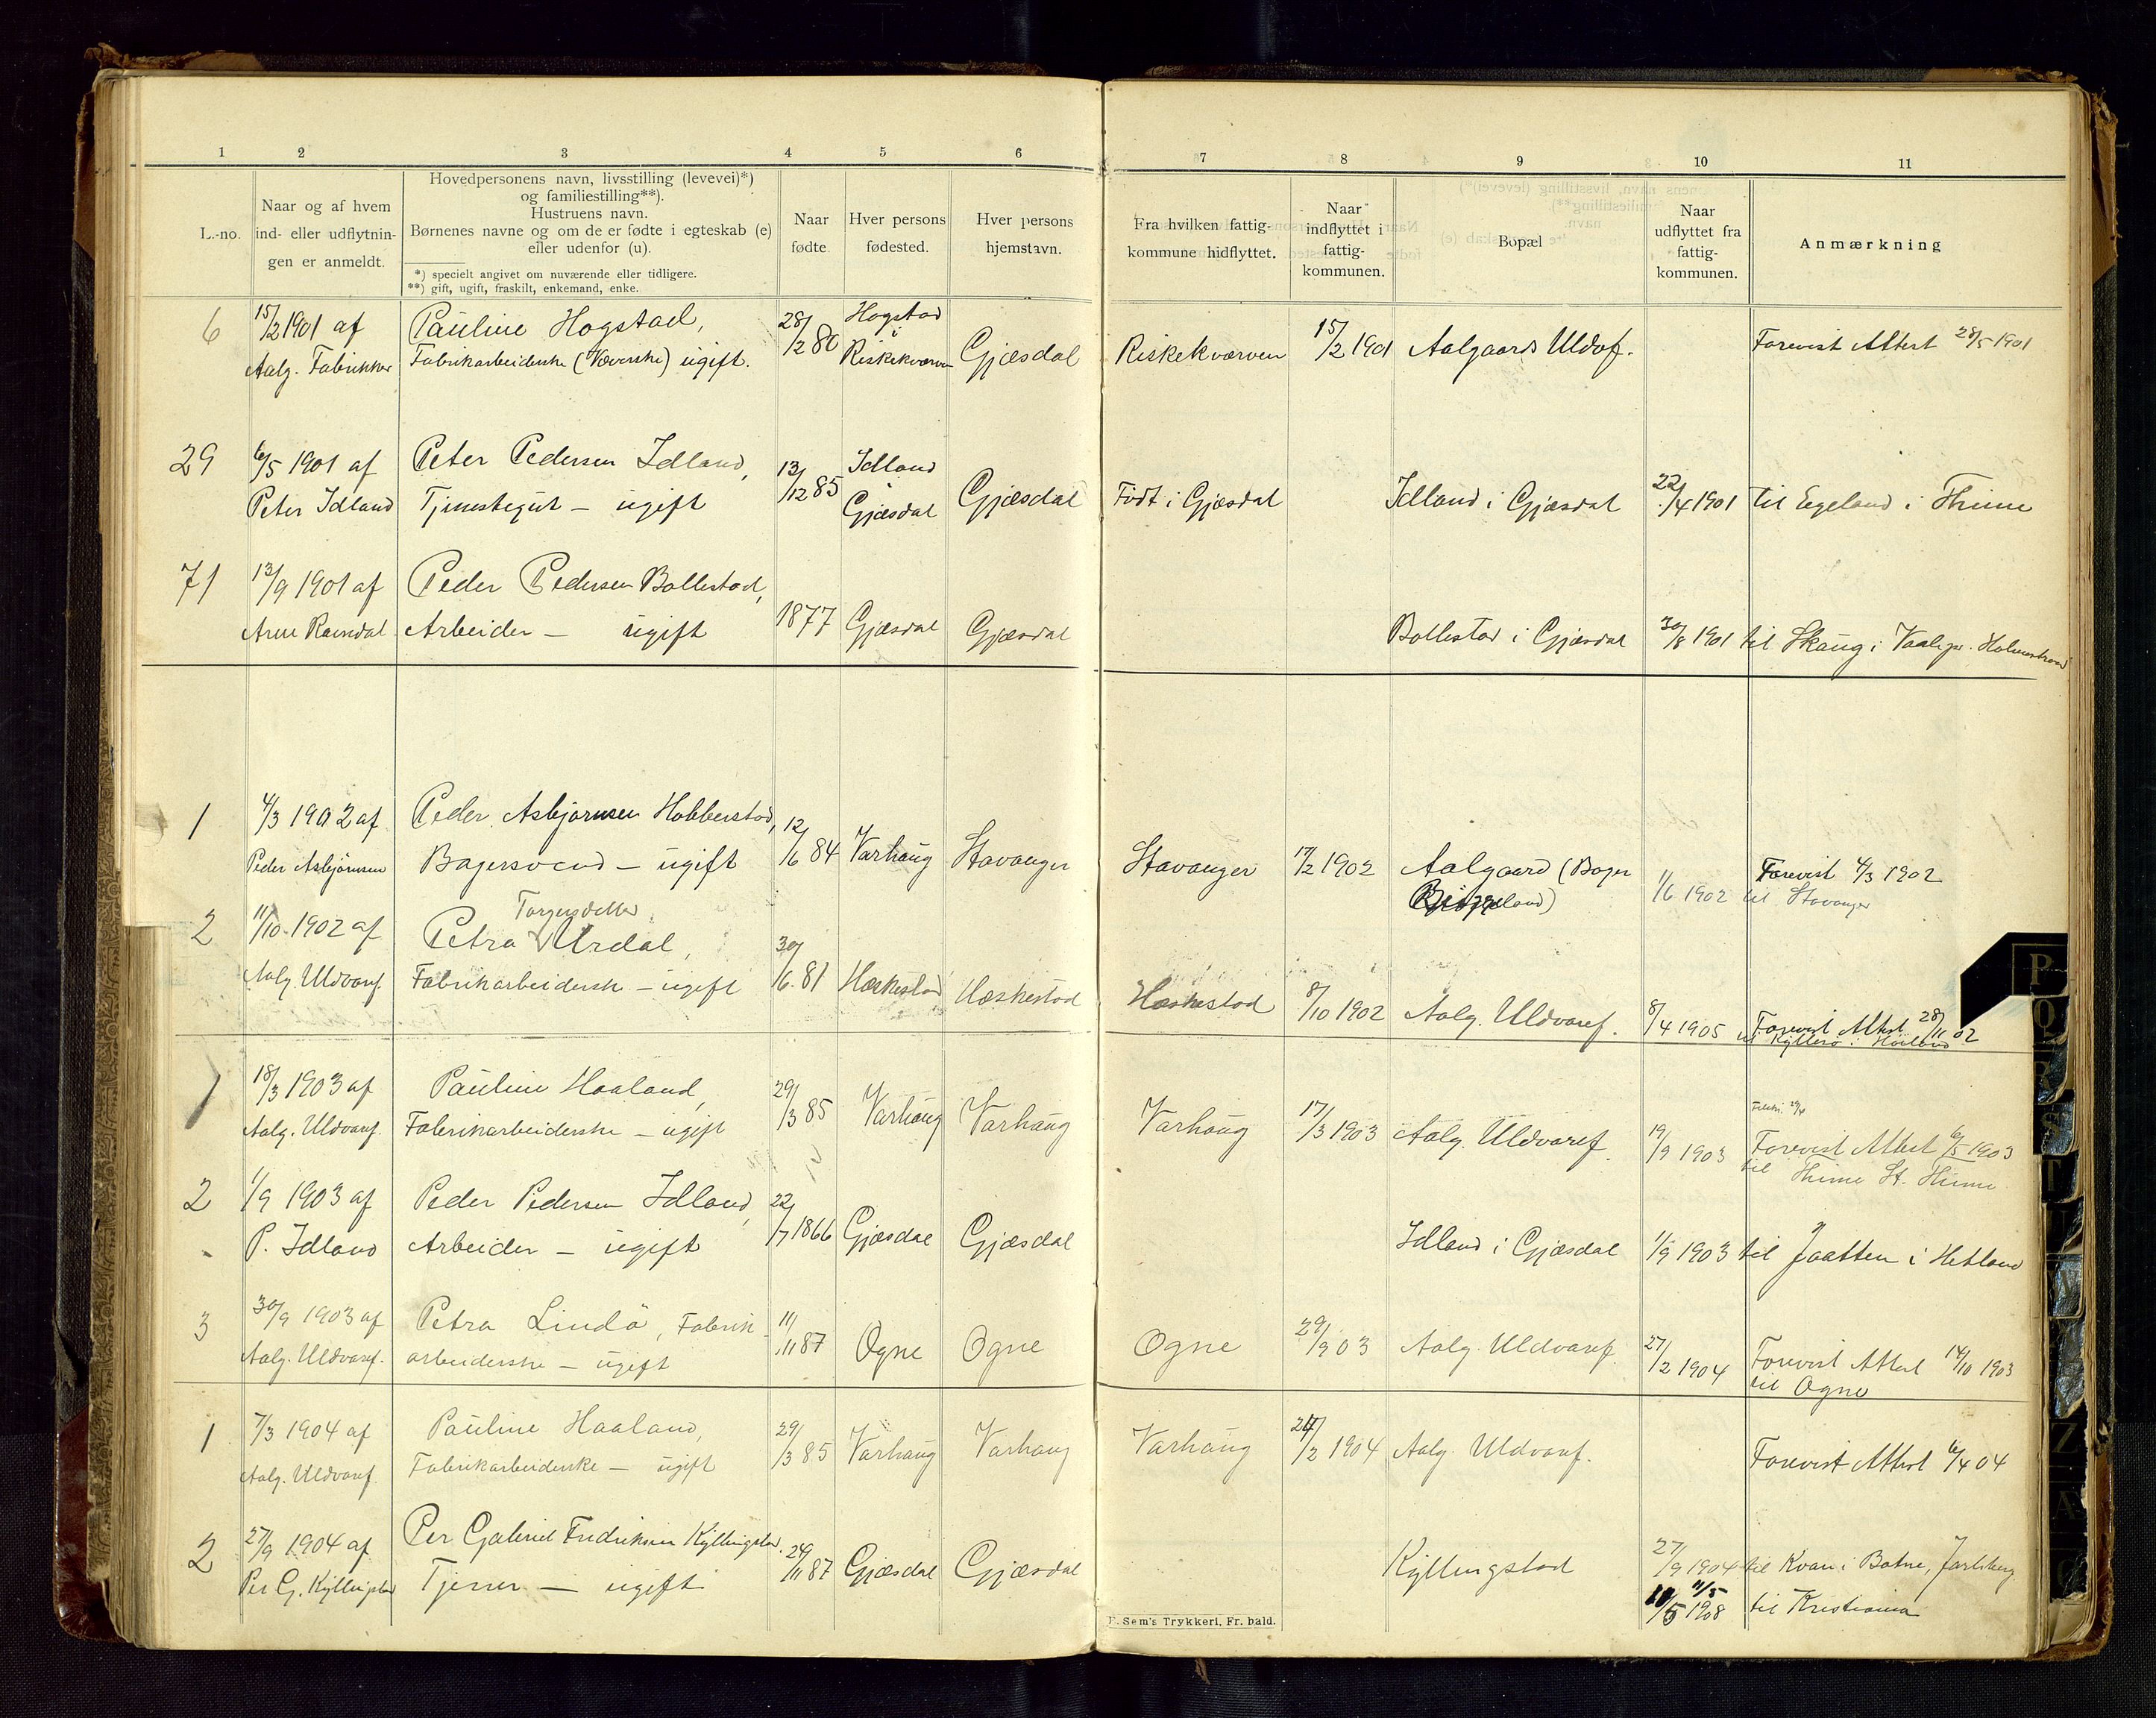 1 2 3 4 5 6 7 8 9 10 11
L.-no.
Naar og af hvem
ind- eller udflytnin-
gen er anmeldt.
Hovedpersonens navn, livsstilling (levevei)*)
og familiestilling**).
Hustruens navn.
Børnenes navne og om de er fødte i egteskab (e)
eller udenfor (u).
*) specielt angivet om nuværende eller tidligere.
**) gift, ugift, fraskilt, enkemand, enke.
Naar
fødte.
Hver persons
fødested.
Hver persons
hjemstavn.
Fra hvilken fattig-
kommune hidflyttet.
Naar
indflyttet i
fattig-
kommunen.
Bopæl
Naar
udflyttet fra
fattig-
kommunen.
Anmærkning
6 15/2 1901 af Pauline Hogstad, 28/2 80 Hogstad i Riskekværven Gjæsdal Riskekværven 15/2 1901 Aalgaards Uldvf. Forevist Attest 28/5 1901
Aalg. Fabrikker Fabrikarbeiderske (Væverske) ugift.
29 6/5 1901 af Peter Pedersen Idland, 13/12 85 Idland Gjæsdal Gjæsdal Født i Gjæsdal Idland i Gjæsdal 22/4 1901 til Eegeland i Thime
Peter Idland Tjenestegut – ugift
71 13/9 1901 af Peder Pedersen Bollestad, 1877 Gjæsdal Gjæsdal Bollestad i Gjæsdal 30/8 1901 til Skaug i Vaalepr. Holmestrand
Arne Ravndal Arbeider – ugift
1 4/3 1902 af Peder Asbjørnsen Hobberstad, 12/6 84 Varhaug Stavanger Stavanger 17/2 1902 Aalgaard (Bager Forevist 4/3 1902
Peder Asbjørnsen Bagersvend – ugift 1/6 1902 til Stavanger
2 11/10 1902 af Torgersdatter
Petra Urdal, 30/6 81 Hæskestad Hæskestad Hæskestad 8/10 1902 Aalg. Uldvaref. 8/4 1905 Forevist Attest 28/11 02
Aalg. Uldvaref. Fabrikarbeidersk – ugift til i Høiland
1 18/3 1903 af Pauline Haaland, 29/3 85 Varhaug Varhaug Varhaug 17/3 1903 Aalg. Uldvaref. 19/9 1903 Forevist Attest 6/5 1903
Aalg. Uldvaref. Fabrikarbeiderske – ugift til Thime St. Thime
2 1/9 1903 af Peder Pedersen Idland, 22/7 1866 Gjæsdal Gjæsdal Idland i Gjæsdal 1/9 1903 til Jaatten i Hetland
P. Idland Arbeider – ugift
3 30/9 1903 af Petra Lindø, Fabrik- 11/11 87 Ogne Ogne Ogne 29/9 03 Aalg. Uldvaref. 27/2 1904 Forevist Attest 14/10 1903
Aalg. Uldvaref. arbeiderske – ugift til Ogne
1 7/3 1904 af Pauline Haaland, 29/3 85 Varhaug Varhaug Varhaug 24/2 1904 Aalg. Uldvaref. Forevist Attest 6/4 04
Aalg. Uldvaref. Fabrikarbeiderske – ugift
2 27/9 1904 af Per Gabriel Fredriksen Kyllingstad. 29/11 87 Gjæsdal Gjæsdal Kyllingstad 27/9 1904 til Kvan i Botne, Jarlsberg
Per G. Kyllingstad Tjener – ugift 10/5 1908 til Kristiania
Sem's Trykkeri, Fr.hald.
P
Q
R
S
T
U
Z